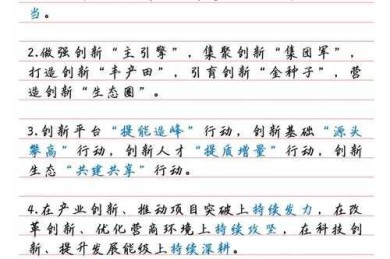 当。
2.做强创新“主引擎”，集聚创新“集团军”，
打造创新“丰产田”，引育创新“金种子”，营
造创新“生态圈”。
3.创新平台“提能造峰”行动，创新基础“源头
攀高”行动，创新人才“提质增量”行动，创新
生态“共建共享”行动。
4.在产业创新、推动项目突破上持续发力，在改
革创新、优化营商环境上持续攻坚，在科技创
新、提升发展能级上持续深耕。